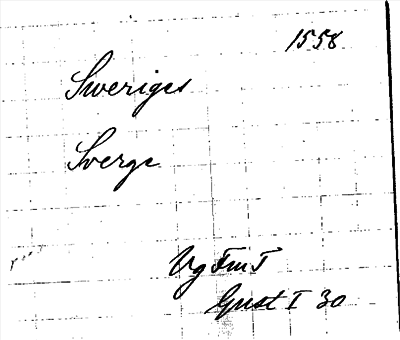 1558
Sweriges
Sverge
Vg Fm T
Gust I 30